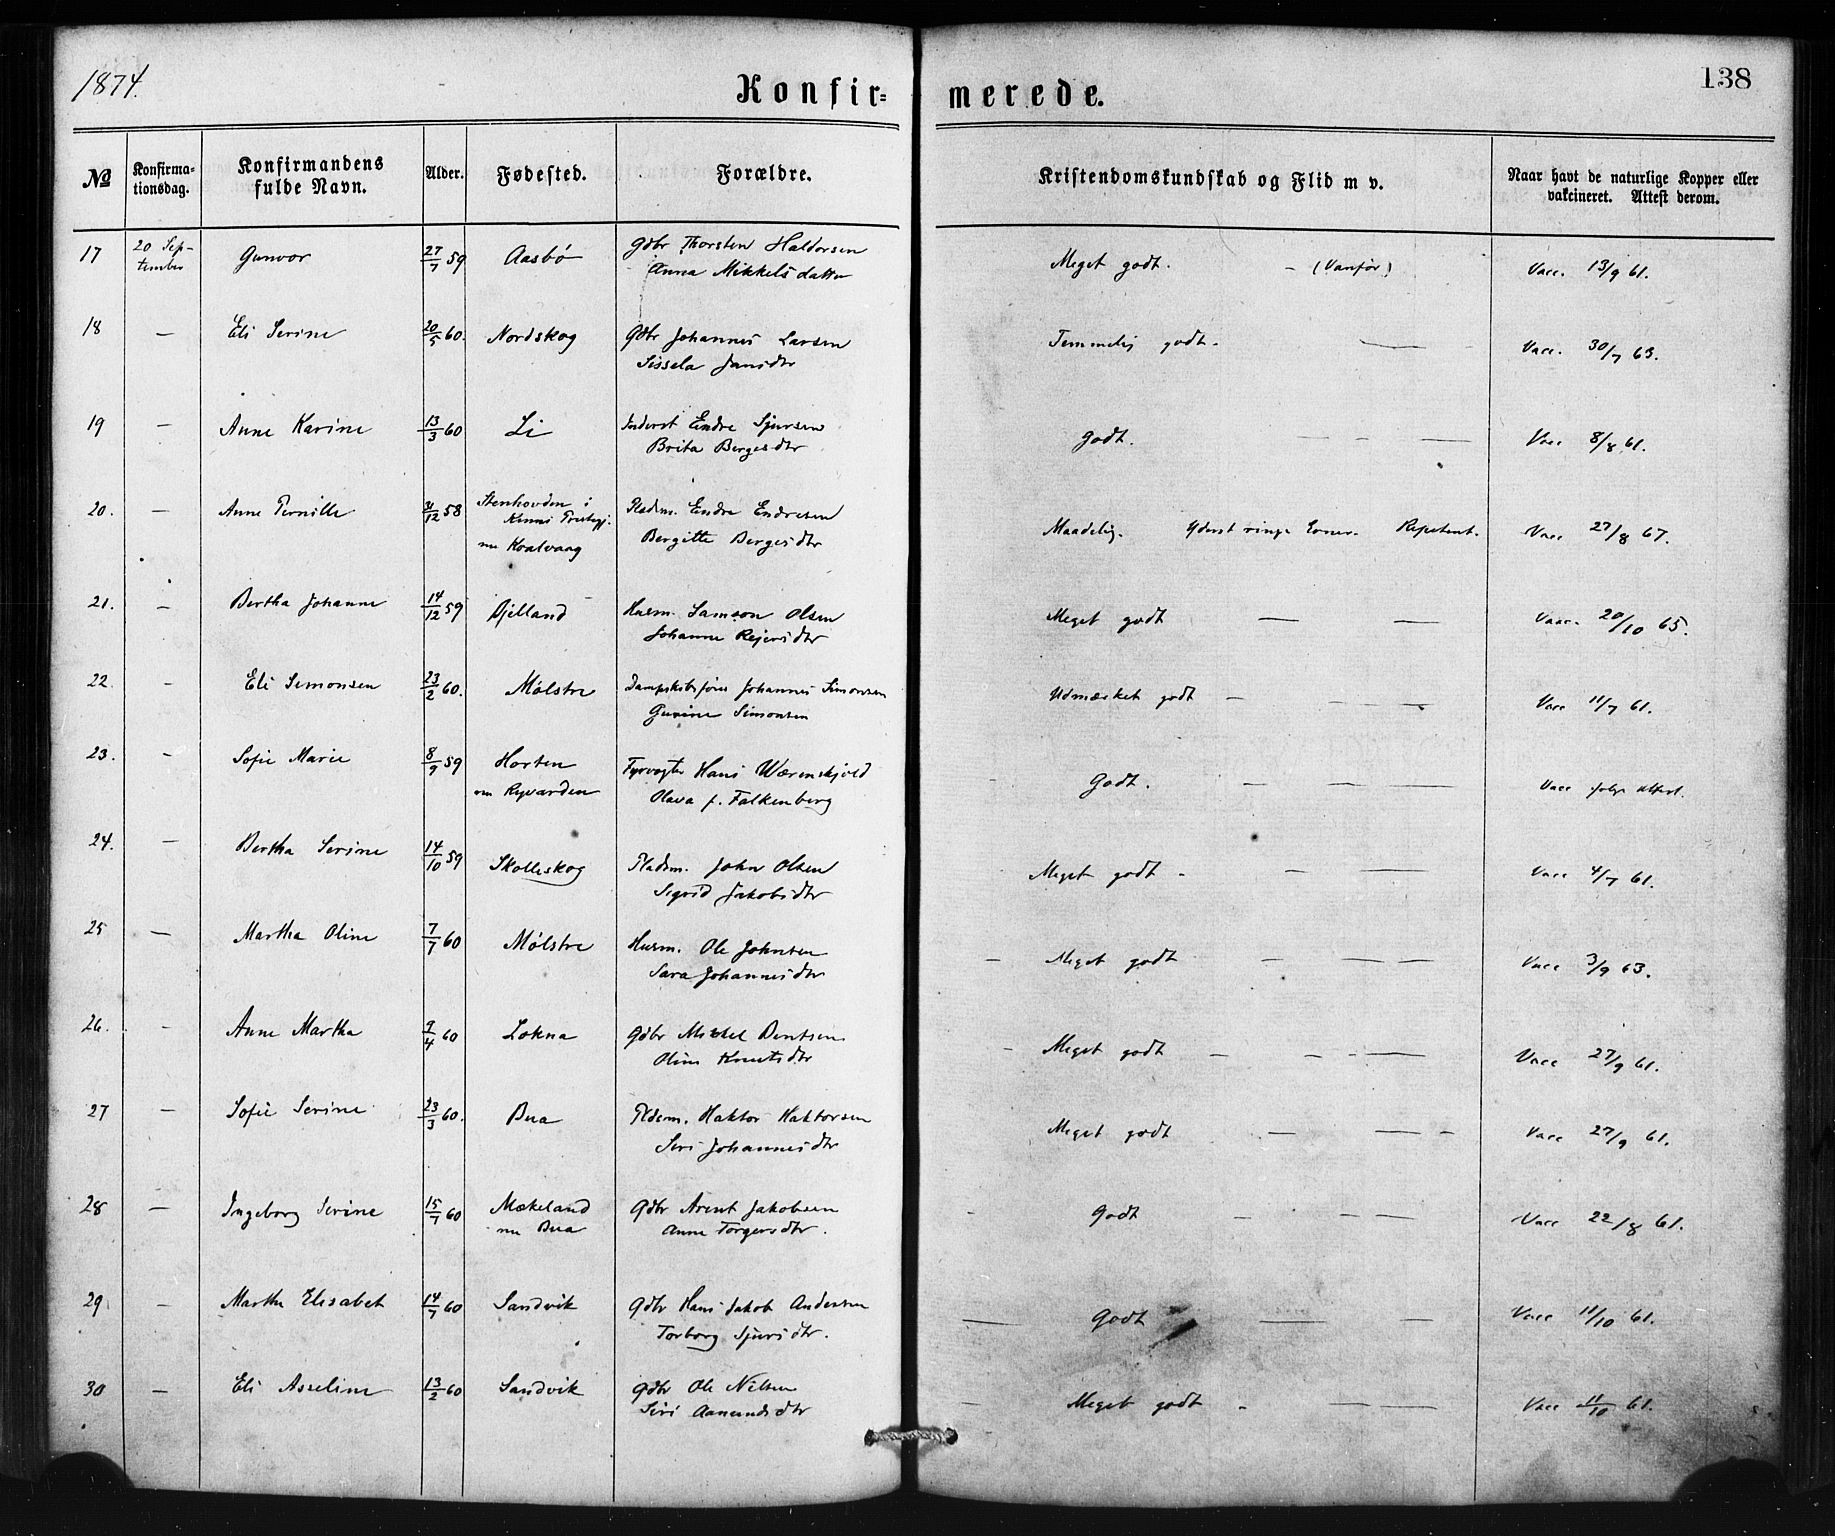 1874.
Konfir=
merede.
138
No
Konfirma-
tionsdag.
Konfirmandens
fulde Navn.
Alder.
Fødested.
Forældre.
Kristendomskundskab og Flid m v.
Naar havt de naturlige Kopper eller
vakcineret. Attest derom.
17 20 Sep- Gunvor 27/7 59 Aasbø Gdbr Thorsten Haldorsen Meget godt. - (Vanfør) Vacc. 13/9 61.
tember Anna Mikkelsdatter
18 — Eli Serine 20/5 60. Nordskog Gdbr Johannes Larsen Temmelig godt. — — Vacc. 30/7 63.
Sissela Jansdtr
19 — Anne Karine 13/3 60 Li Inderst Endre Sjursen Godt. — - — Vacc 8/8 61.
Brita Bergesdtr
20. — Anne Pernille 31/12 58 Stenhovden i Pladsm. Endre Endresen Maadelig. Yderst ringe Evner. Repetent. Vacc 27/8 67.
Kinns Præstgj.
nu Kvalvaag Bergitte Bergesdtr
21. — Bertha Johanne 14/12 59 Bjelland Husm. Samson Olsen Meget godt — — Vacc. 20/10 65.
Johanne Rejersdtr
22. - Eli Simonsen 23/2 60. Mølstre Dampskibsfører Johannes Simonsen Udmærket godt — - — Vacc 11/7 61.
Gurine Simonsen
23. — Sofie Marie 8/9 59 Horten Fyrvogter Hans Wærenskjold Godt. — — — Vacc følge Attest.
nu Ryvarden Olava f. Falkenberg
24. — Bertha Serine 14/10 59 Skolleskog Pladsm. John Olsen Meget godt - — — Vacc 4/7 61.
Sigrid Jakobsdtr
25 — Martha Oline 7/7 60 Mølstre Husm. Ole Johnsen — Meget godt — — — Vacc 3/9 63.
Sara Johannesdtr
26. - Anne Martha 9/4 60 Lokna Gdbr Mikkel Bentsen - Meget godt — - - — Vacc 27/9 61.
Oline Knutsdtr
27 — Sofie Serine 23/3 60. Bua Pldsm. Haktor Haktorsen Meget godt — — - Vacc 27/9 61.
Siri Johannesdtr
28 — Ingeborg Serine 15/7 60 Mækeland Gdbr Arent Jakobsen - Godt — - — Vacc 22/8 61.
nu Bua Anne Torgersdtr.
29 — Martha Elisabet 14/7 60 Sandvik Gdbr Hans Jakob Andersen — Godt — — Vacc 11/10 61.
Torborg Sjursdtr.
30 — Eli Asseline 13/2 60 Sandvik Gdbr Ole Nilsen — Meget godt - — — Vacc 11/10 61.
Siri Aamundsdtr